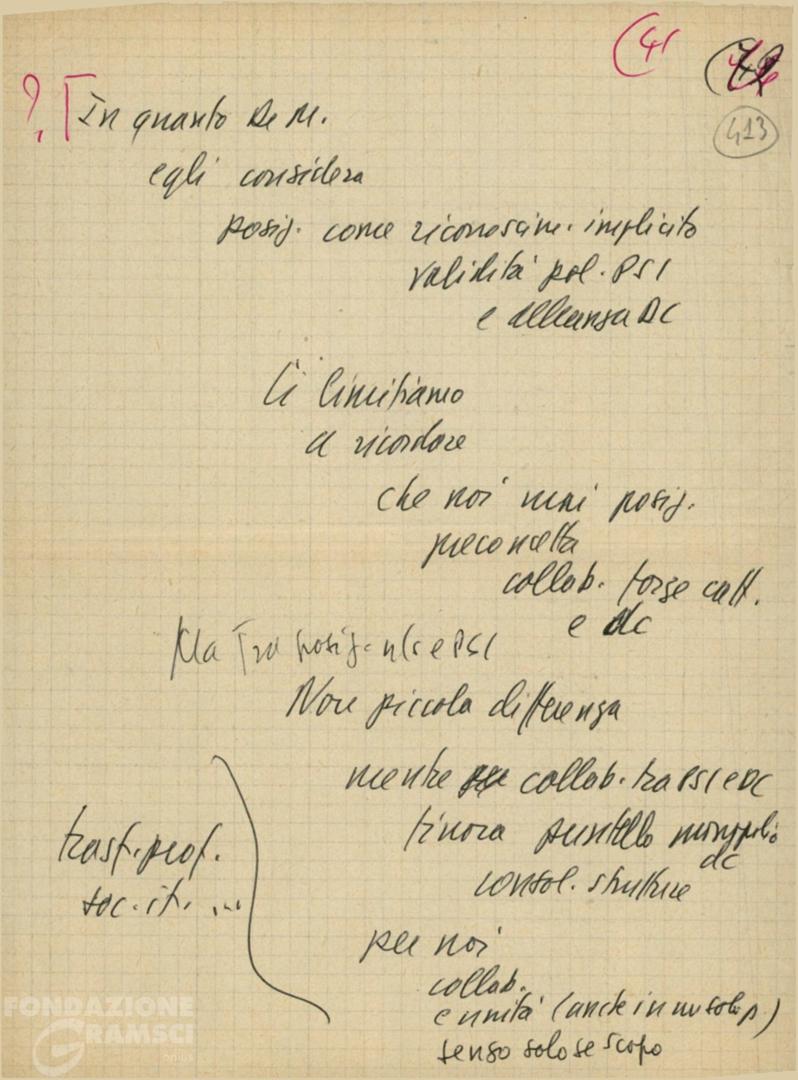 (41
413
?. [In quanto De M.
egli considera
posiz. come riconoscim. implicito
validità pol. PSI
e alleanza DC
Ci limitiamo
a ricordare
che noi mai posiz.
preconcetta
collab. forze catt.
e dc
Ma Tra posiz. e PSI
Non piccola differenza
mentre collab. tra PSI e DC
finora puntello monopolio
dc
consol. strutture
trasf. prof.
soc. it. ...
per noi
collab.
e unità (anche in un solo p.)
senso solo se scopo
FONDAZIONE
GRAMSCI